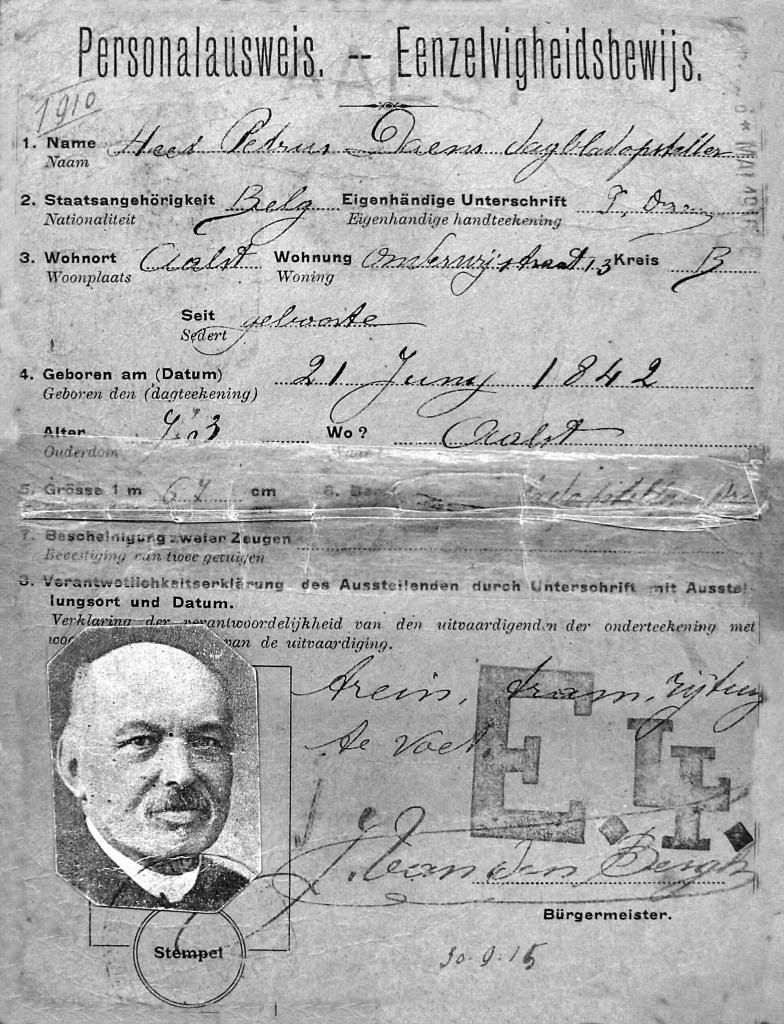 Personalausweis. -- Eenzelvigheidsbewijs.
1910
1. Name Petrus Daens dagbladopsteller
Naam
2. Staatsangehörigkeit Belg Eigenhändige Unterschrift P.
Nationaliteit Eigenhandige handteekening
3. Wohnort Aalst Wohnung 13 Kreis B
Woonplaats Woning
Seit geboorte
Sedert
4. Geboren am (Datum) 21 Juny 1842
Geboren den (dagteekening)
Alter 73 Wo? Aalst
Ouderdom
5. Grösse 1 m 67 cm 6.
7. Bescheinigung zweier Zeugen
Bevestiging van twee getuigen
8. Verantwortlichkeitserklärung des Ausstellenden durch Unterschrift mit Ausstel-
lungsort und Datum.
Verklaring der verantwoordelijkheid van den uitvaardigenden der onderteekening met
van de uitvaardiging.
trein, tram, rijtuig
te voet.
E.
J. Van den Bergh
Bürgermeister.
Stempel
30.9.15